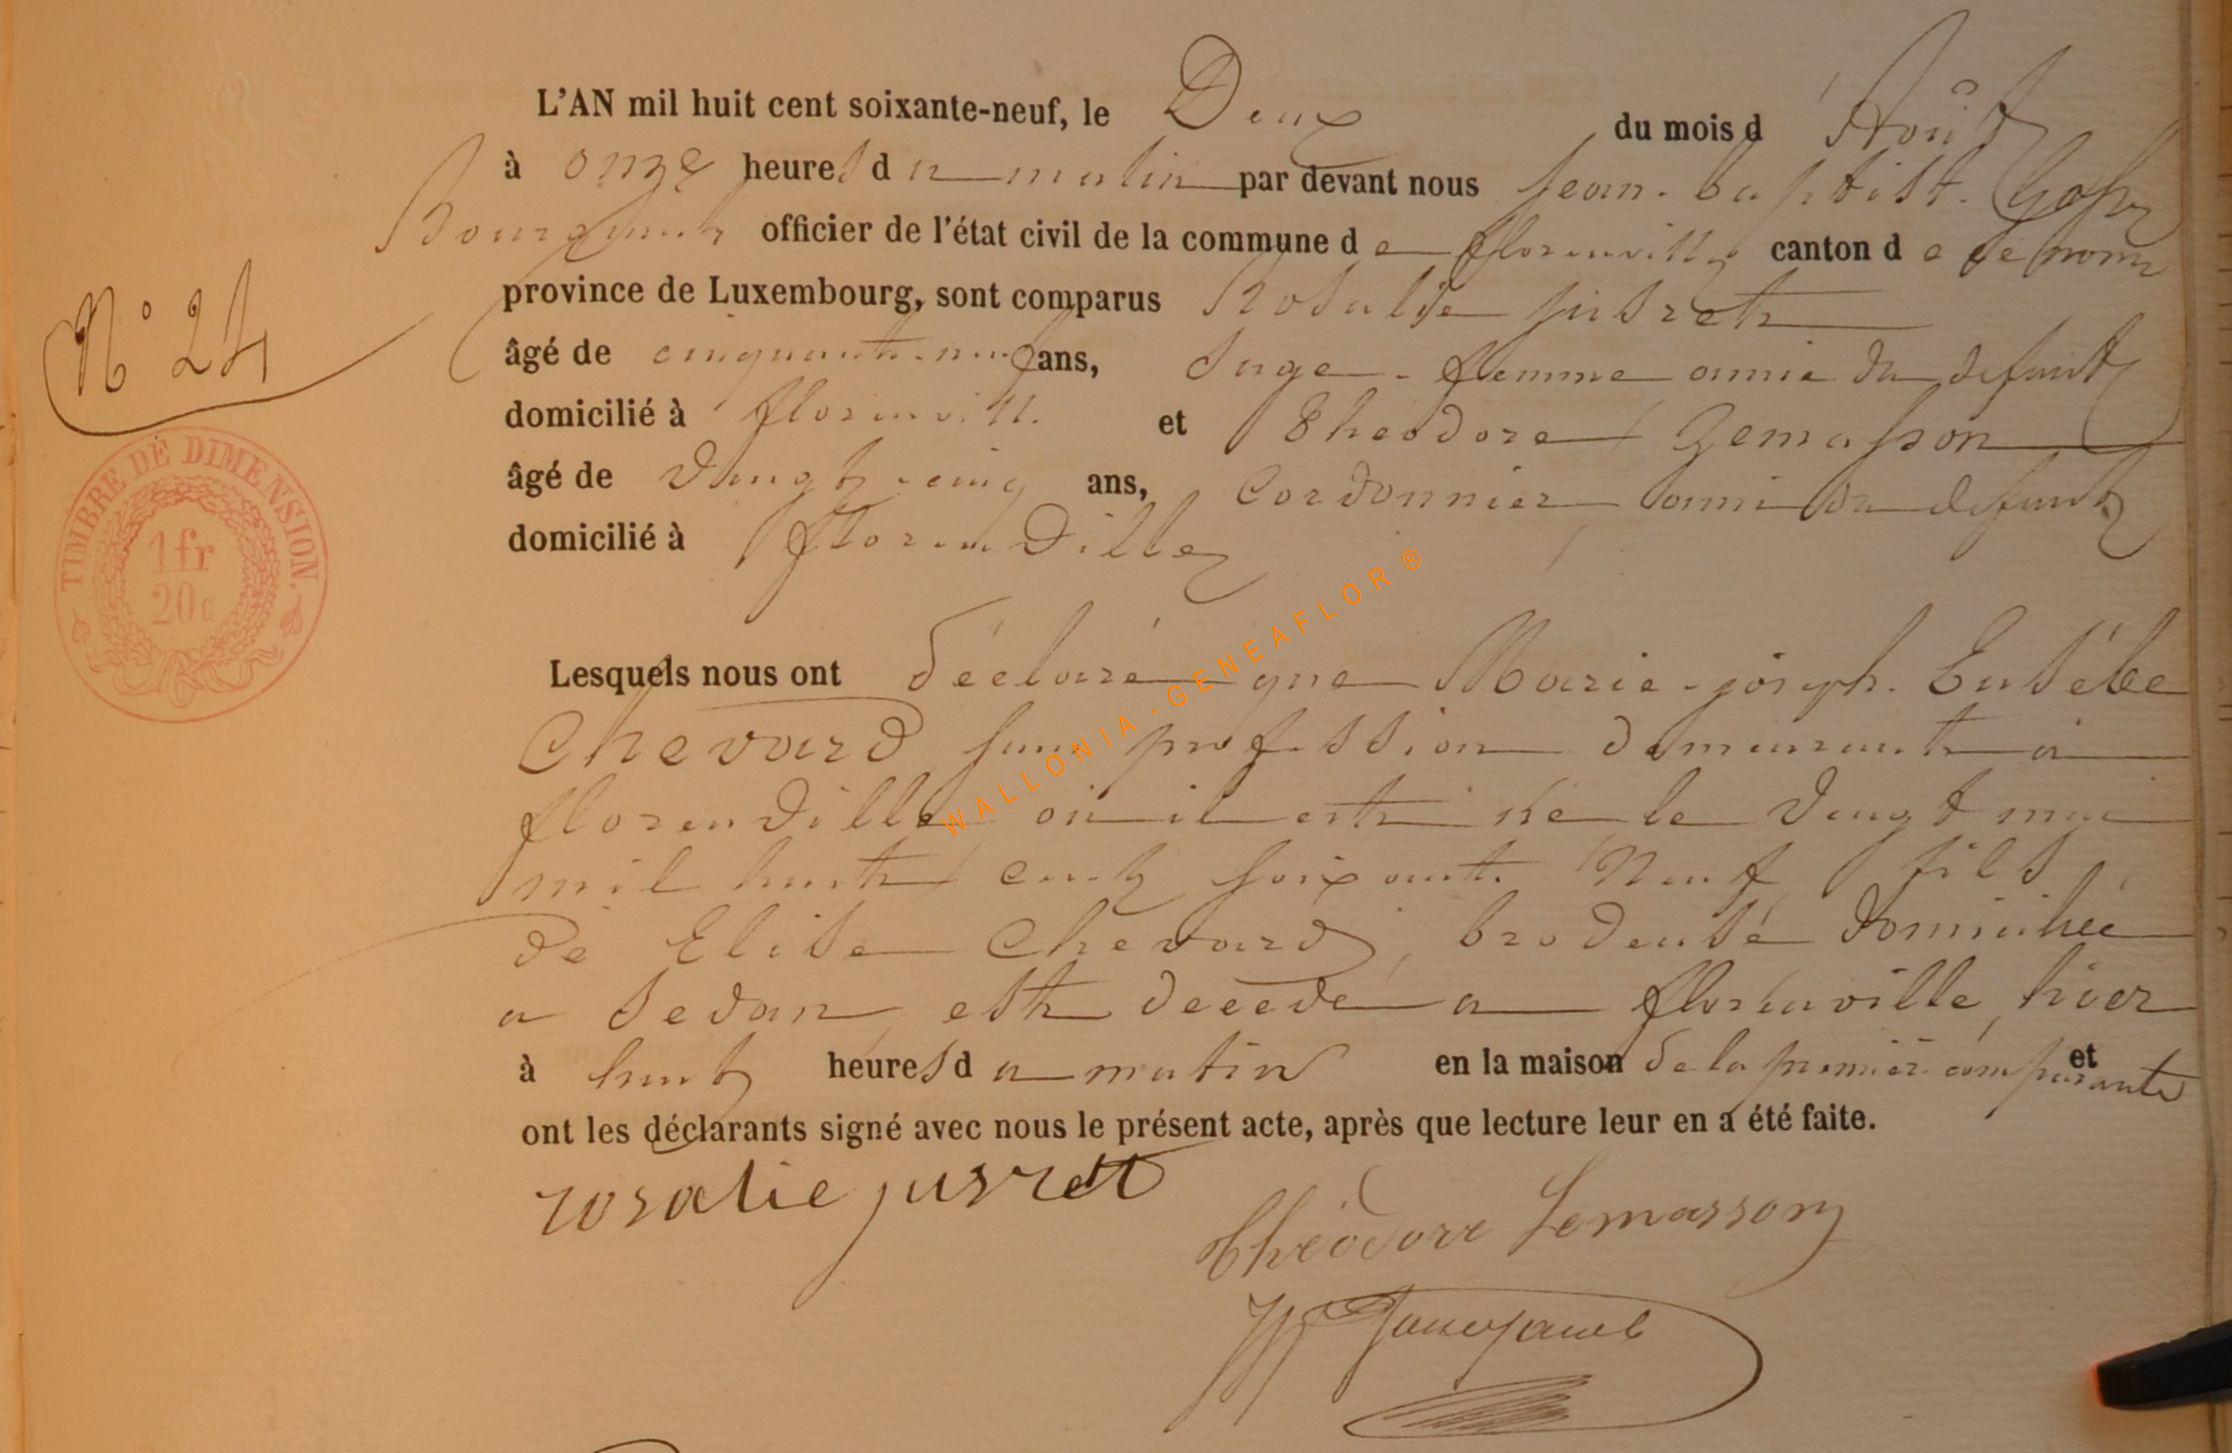 L'AN mil huit cent soixante-neuf, le Deux du mois d Août
à onze heures du matin par devant nous jean-baptist.
officier de l'état civil de la commune de florenville canton de
province de Luxembourg, sont comparus Rosalie jusret
N° 24
âgé de cinquante-neuf ans, sage-femme amie du defunt
domicilié à florenvill. et Théodore Lemasson
âgé de vingt-cinq ans, Cordonnier ami du defunt
domicilié à florenville
TIMBRE DE DIMENSION.
1 fr
20 c
Lesquels nous ont déclaré que Marie-joseph. Eusébe
Chevard sans profession demeurant à
florenville où il est né le vingt mai
mil huit cent soixant. Neuf fils
de Elise Chevard, brodeuse domiciliée
a Sedan est decedé a florenville, hier
à huit heures du matin en la maison de la premier comparante et
ont les déclarants signé avec nous le présent acte, après que lecture leur en a été faite.
rosalie jusret
théodore Lemasson
WALLONIA-GENEAFLOR®